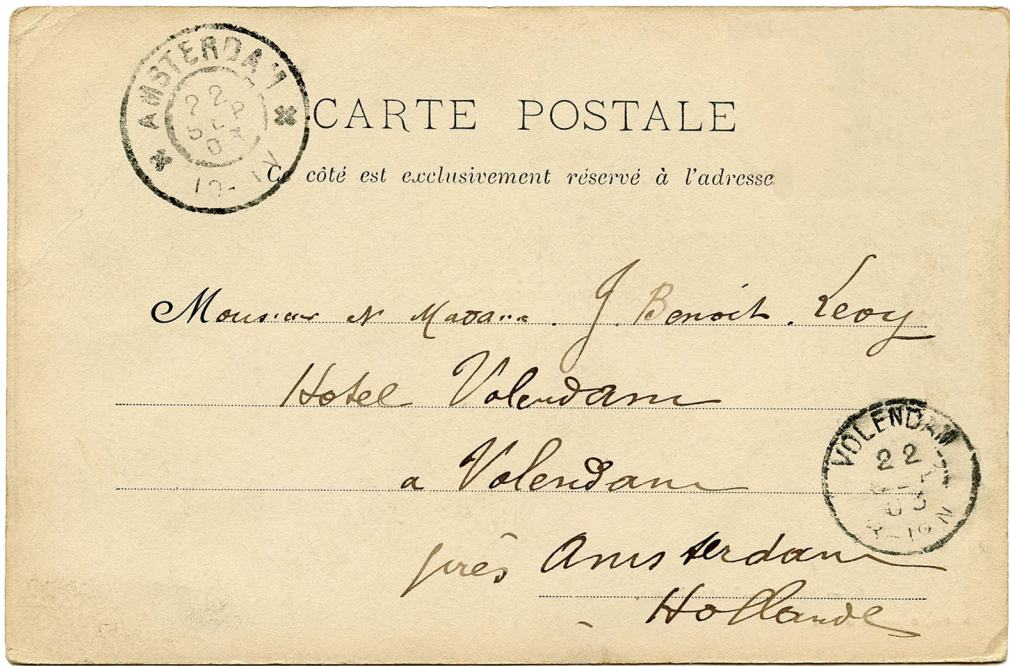 AMSTERDAM
22
SEP
03
CARTE POSTALE
Ce côté est exclusivement réservé à l'adresse
Monsieur et Madame J. Benoit. Levy
Hotel Volendam
a Volendam
près Amsterdam
Hollande
VOLENDAM
22
03